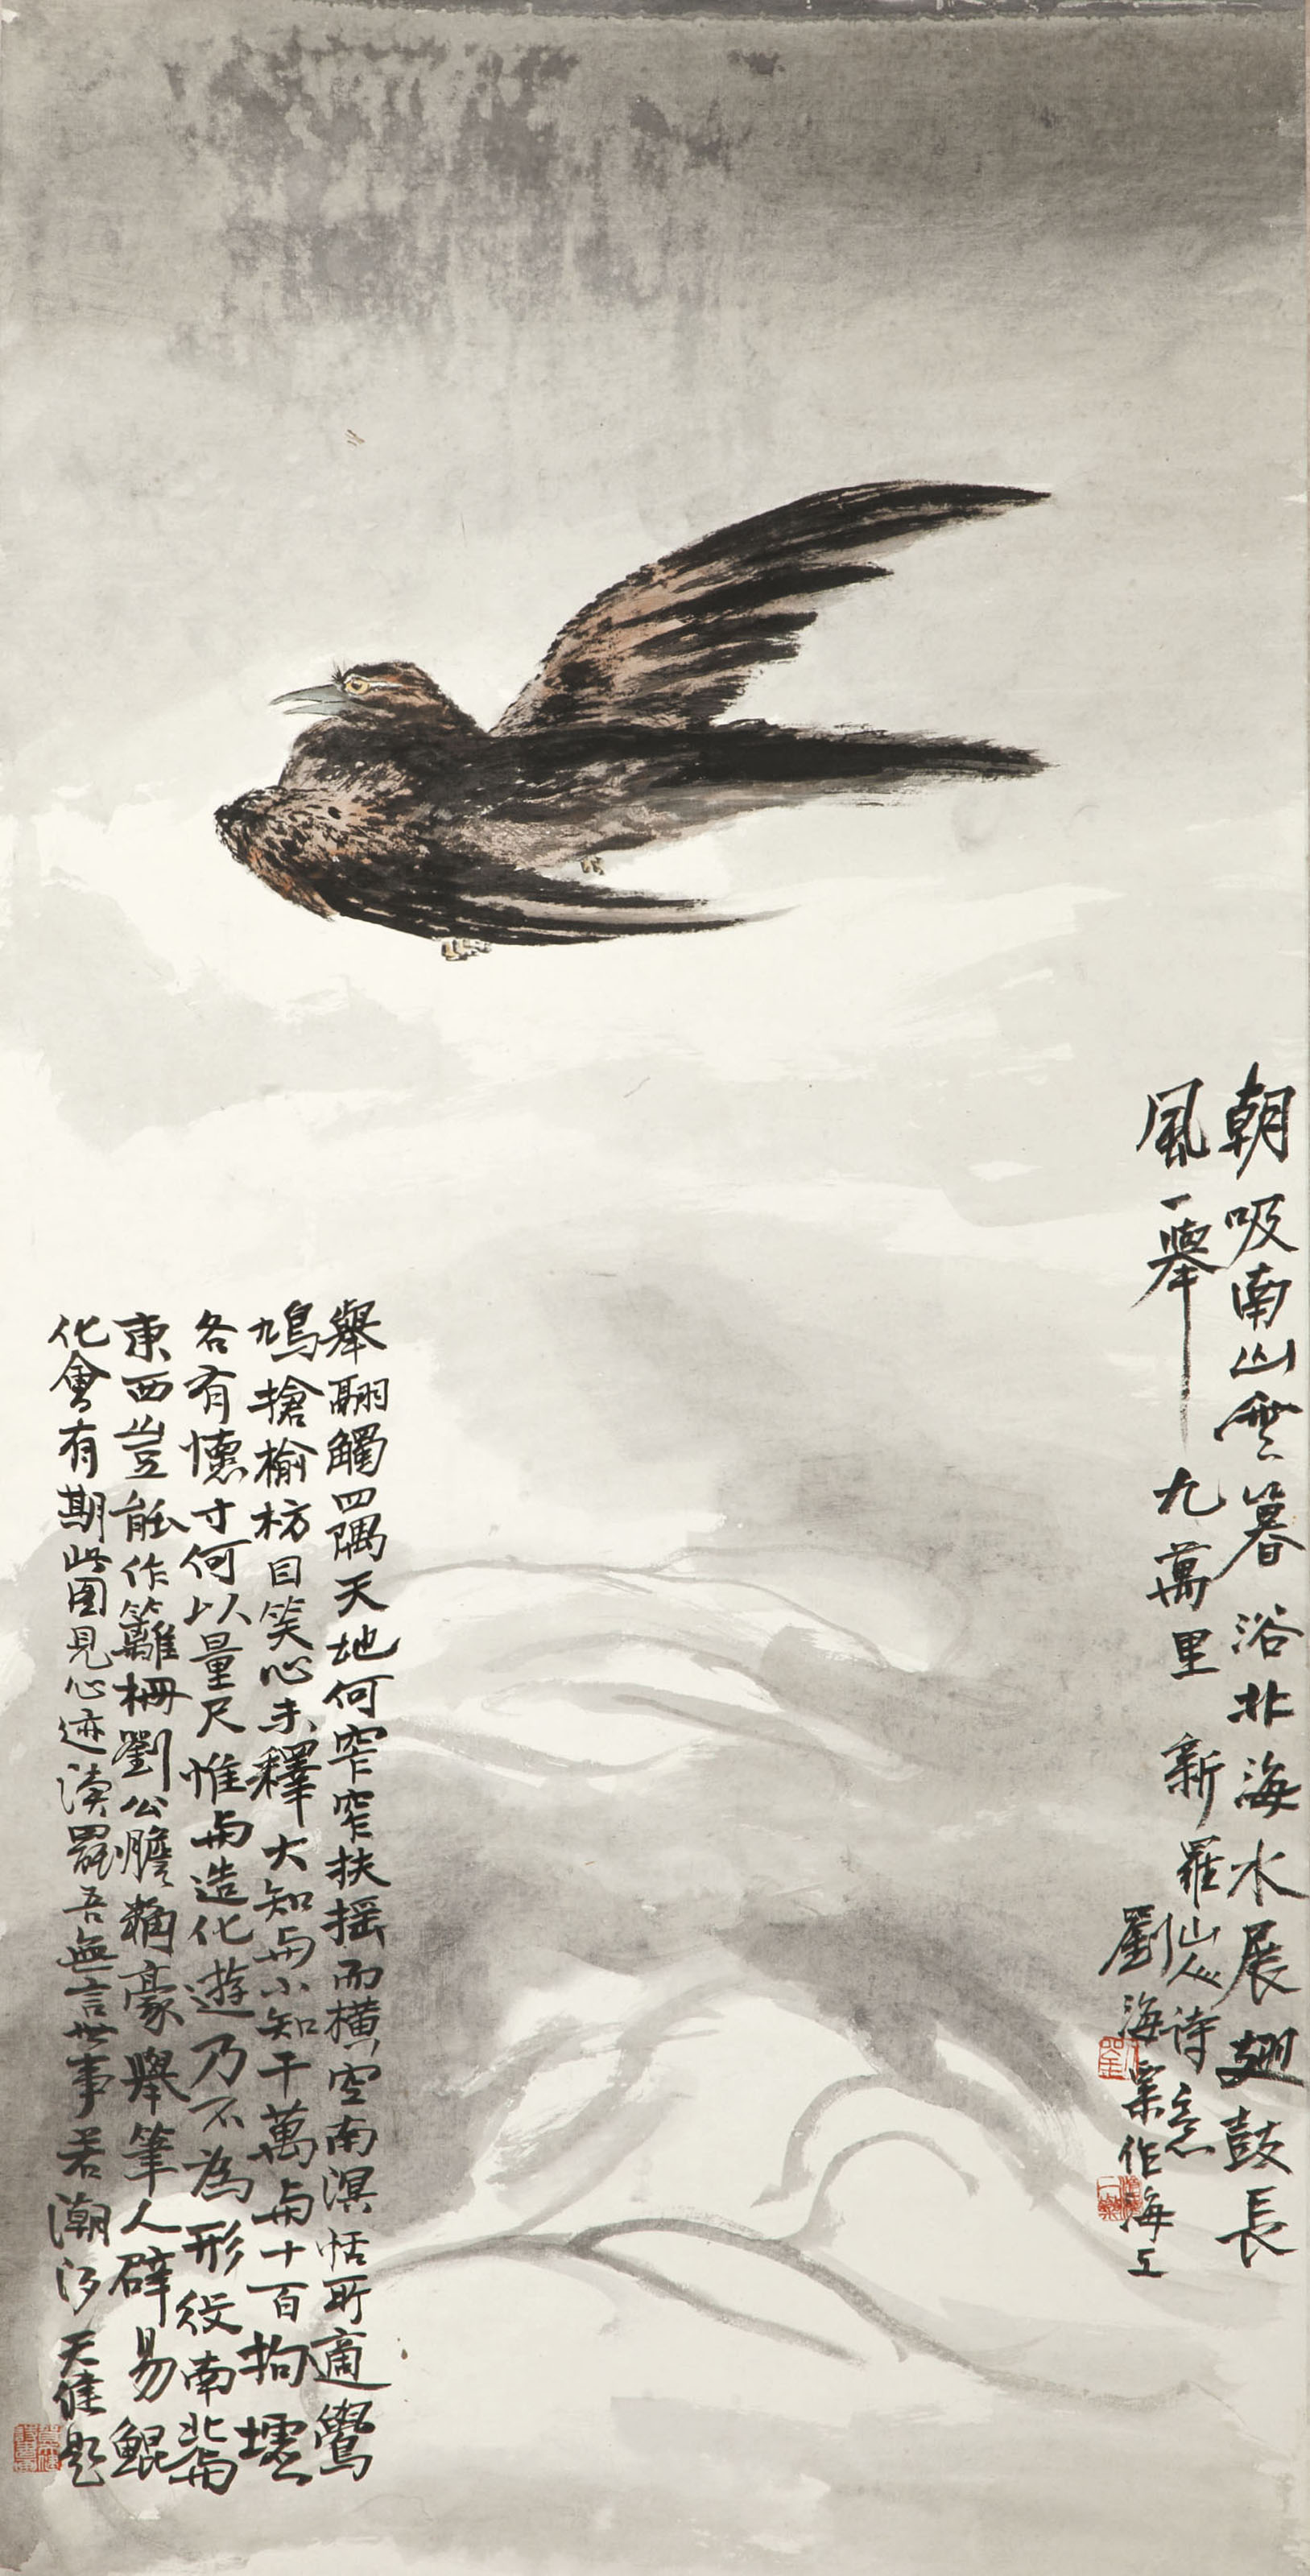 朝吸南山雲暮浴北海水展翅鼓長
風一舉九萬里 新羅山人詩意
劉海粟作海上
舉翮觸四隅天地何窄窄扶搖而橫空南溟恬所適鷽
鳩搶榆枋目笑心未釋大知與小知千萬與十百拘墟
各有懷寸何以量尺惟與造化遊乃不為形役南北與
東西豈能作籬柵劉公膽獨豪舉筆人辟易鯤
化會有期此圖見心迹讀罷吾無言世事若潮汐天健題